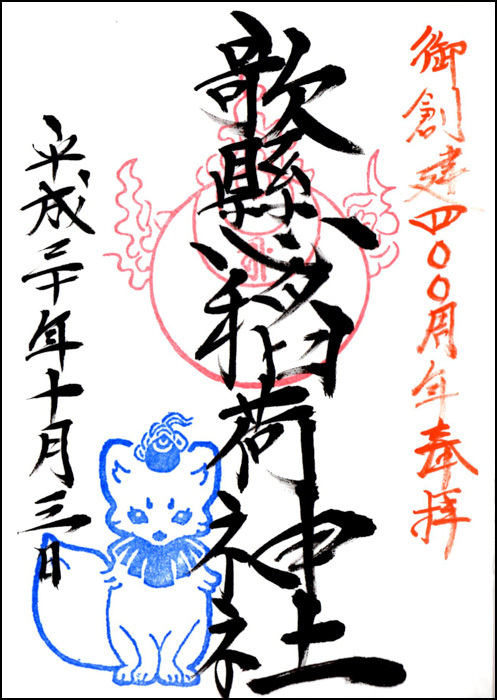 御創建四〇〇周年奉拝
歌懸稲荷神社
平成三十年十月三日